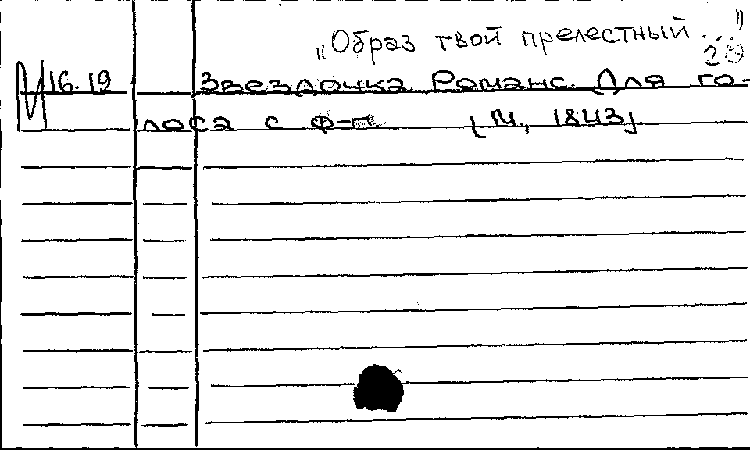 „Образ твой прелестный ..."
16.19 Звездочка. Романс. Для го-
лоса с ф-п [М., 1843]